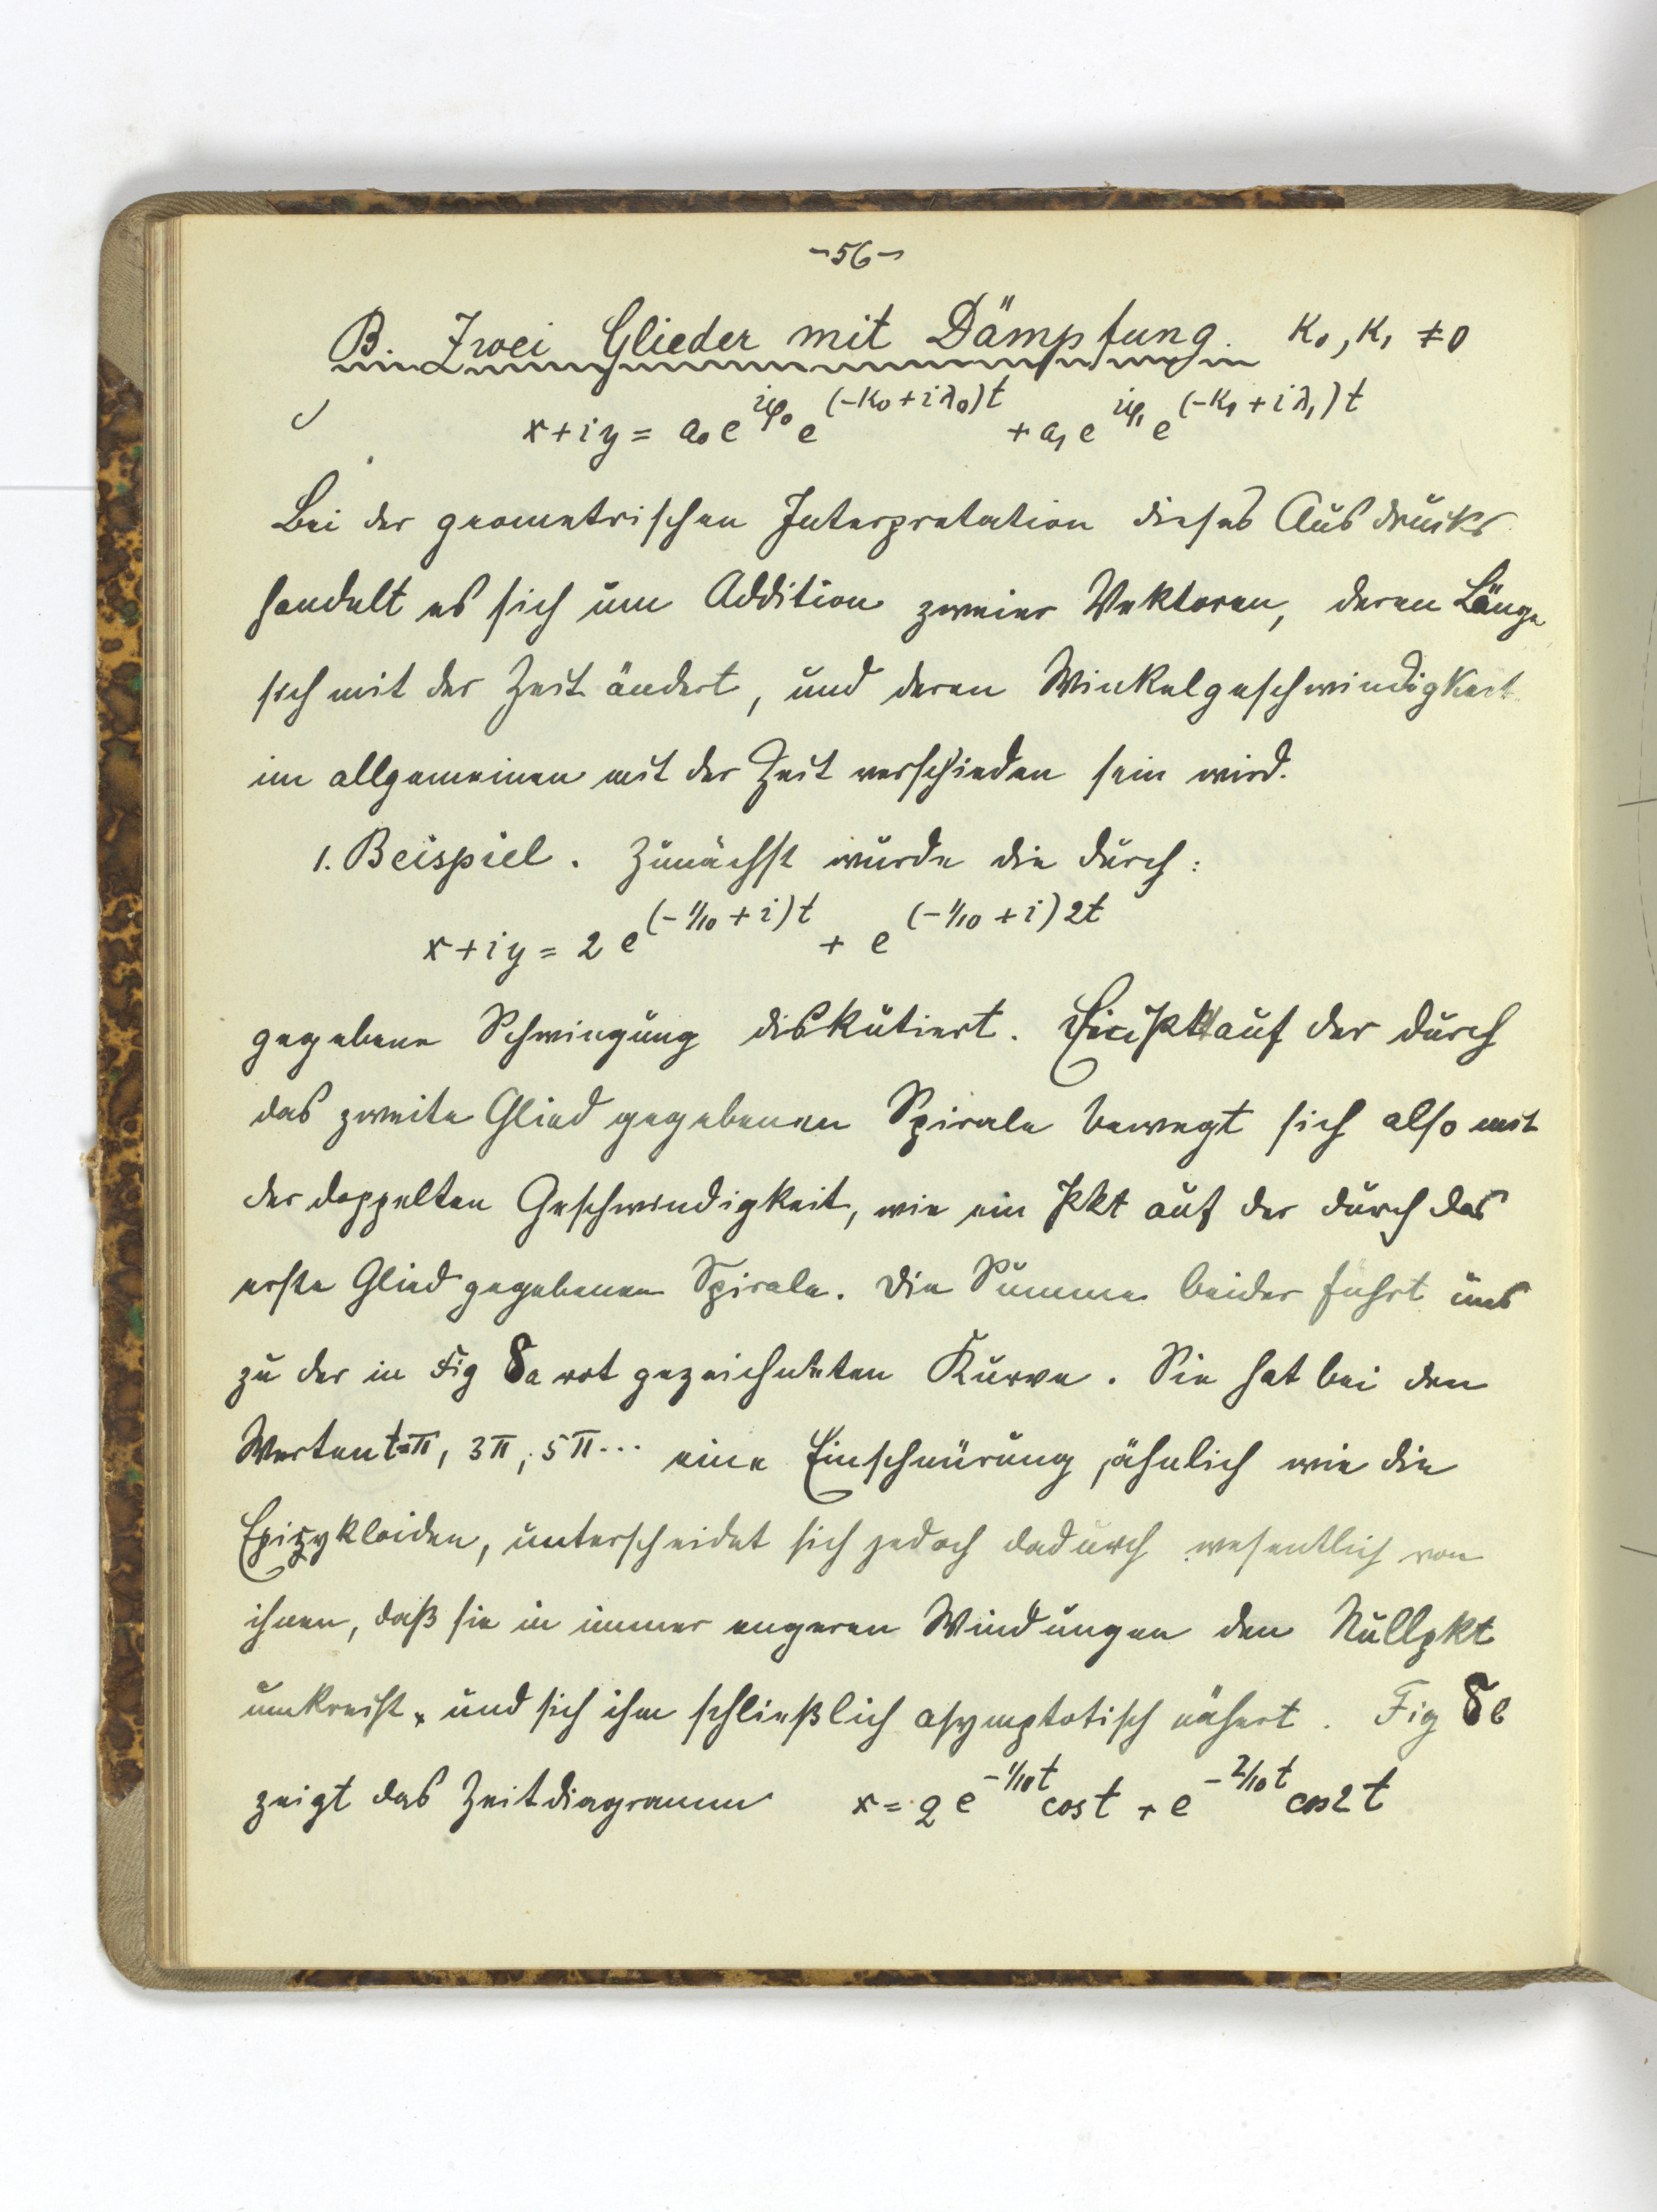 -56-
B. Zwei Glieder mit Dämpfung. K₀, K₁ ≠ 0
x+iy = a₀ e^{iφ₀} e^{(-K₀+iλ₀)t} + a₁ e^{iφ₁} e^{(-K₁+iλ₁)t}
Bei der geometrischen Interpretation dieses Ausdrucks
handelt es sich um Addition zweier Vektoren, deren Länge
sich mit der Zeit ändert, und deren Winkelgeschwindigkeit
im allgemeinen mit der Zeit verschieden sein wird.
1. Beispiel. Zunächst wurde die durch:
x+iy = 2 e^{(-1/10+i)t} + e^{(-1/10+i)2t}
gegebene Schwingung diskutiert. Ein Pkt auf der durch
das zweite Glied gegebenen Spirale bewegt sich also mit
der doppelten Geschwindigkeit, wie ein Pkt auf der durch das
erste Glied gegebenen Spirale. Die Summe beider führt uns
zu der in Fig 8a rot gezeichneten Kurve. Sie hat bei den
Werten t=π, 3π, 5π... eine Einschnürung, ähnlich wie die
Epizykloiden, unterscheidet sich jedoch dadurch wesentlich von
ihnen, daß sie in immer engeren Windungen den Nullpkt
umkreist, und sich ihm schließlich asymptotisch nähert. Fig 8b
zeigt das Zeitdiagramm x = 2 e^{-1/10 t} cos t + e^{-2/10 t} cos 2t